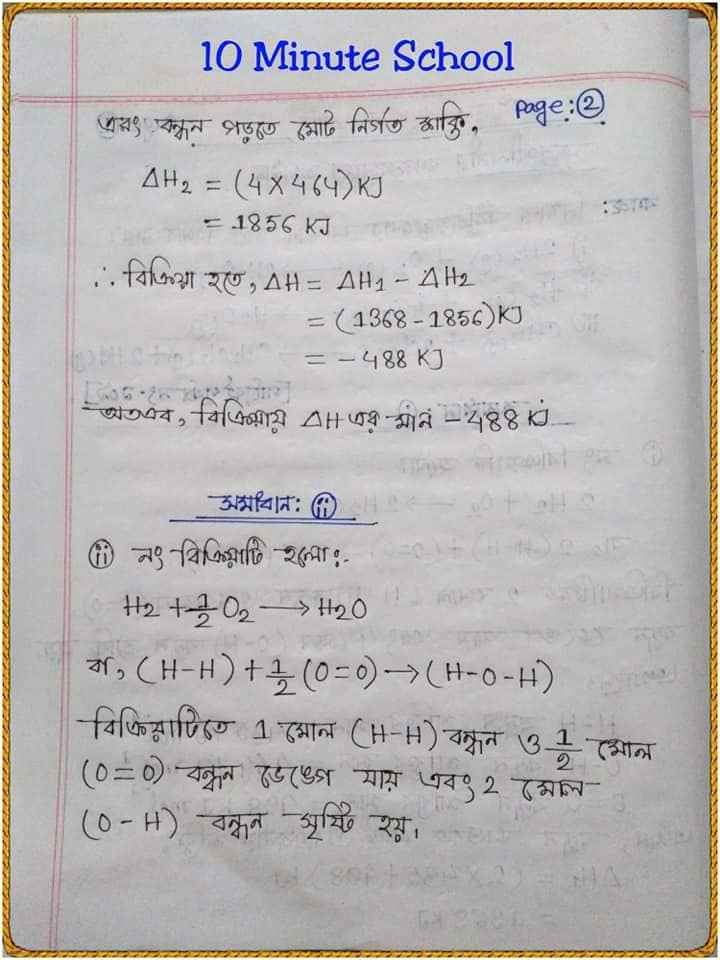 10 Minute School
page: ②
এবং বন্ধন গড়তে মোট নির্গত শক্তি,
ΔH₂ = (4 × 464) KJ
= 1856 KJ
∴ বিক্রিয়া হতে, ΔH = ΔH₁ - ΔH₂
= (1368 - 1856) KJ
= - 488 KJ
অতএব, বিক্রিয়ায় ΔH এর মান - 488 KJ
সমাধান: ⅱ
ⅱ নং বিক্রিয়াটি হলো:-
H₂ + 1/2 O₂ → H₂O
বা, (H-H) + 1/2 (O=O) → (H-O-H)
বিক্রিয়াটিতে 1 মোল (H-H) বন্ধন ও 1/2 মোল
(O=O) বন্ধন ভেঙ্গে যায় এবং 2 মোল
(O-H) বন্ধন সৃষ্টি হয়।